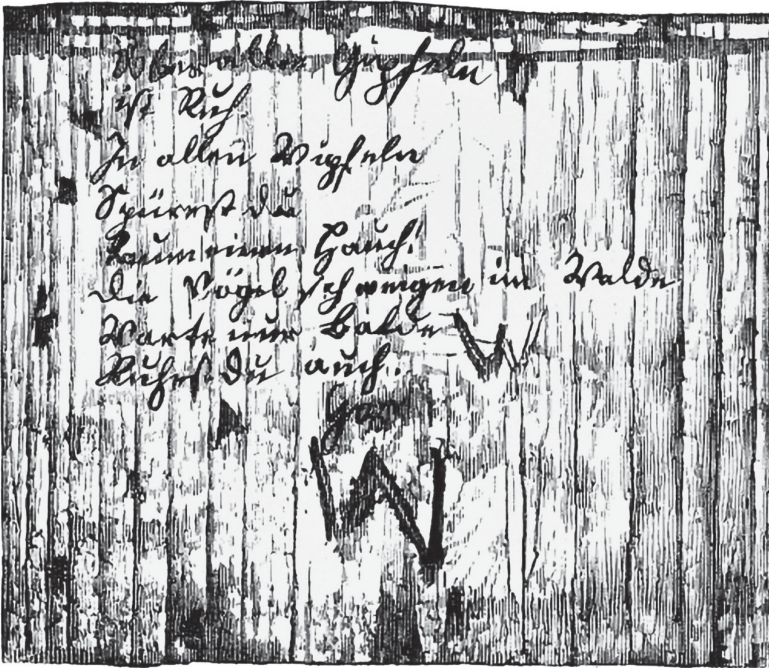 Über allen Gipfeln
ist Ruh
In allen Wipfeln
Spürest du
Kaum einen Hauch!
die Vögel schweigen im Walde
Warte nur balde
Ruhest du auch.
W
W